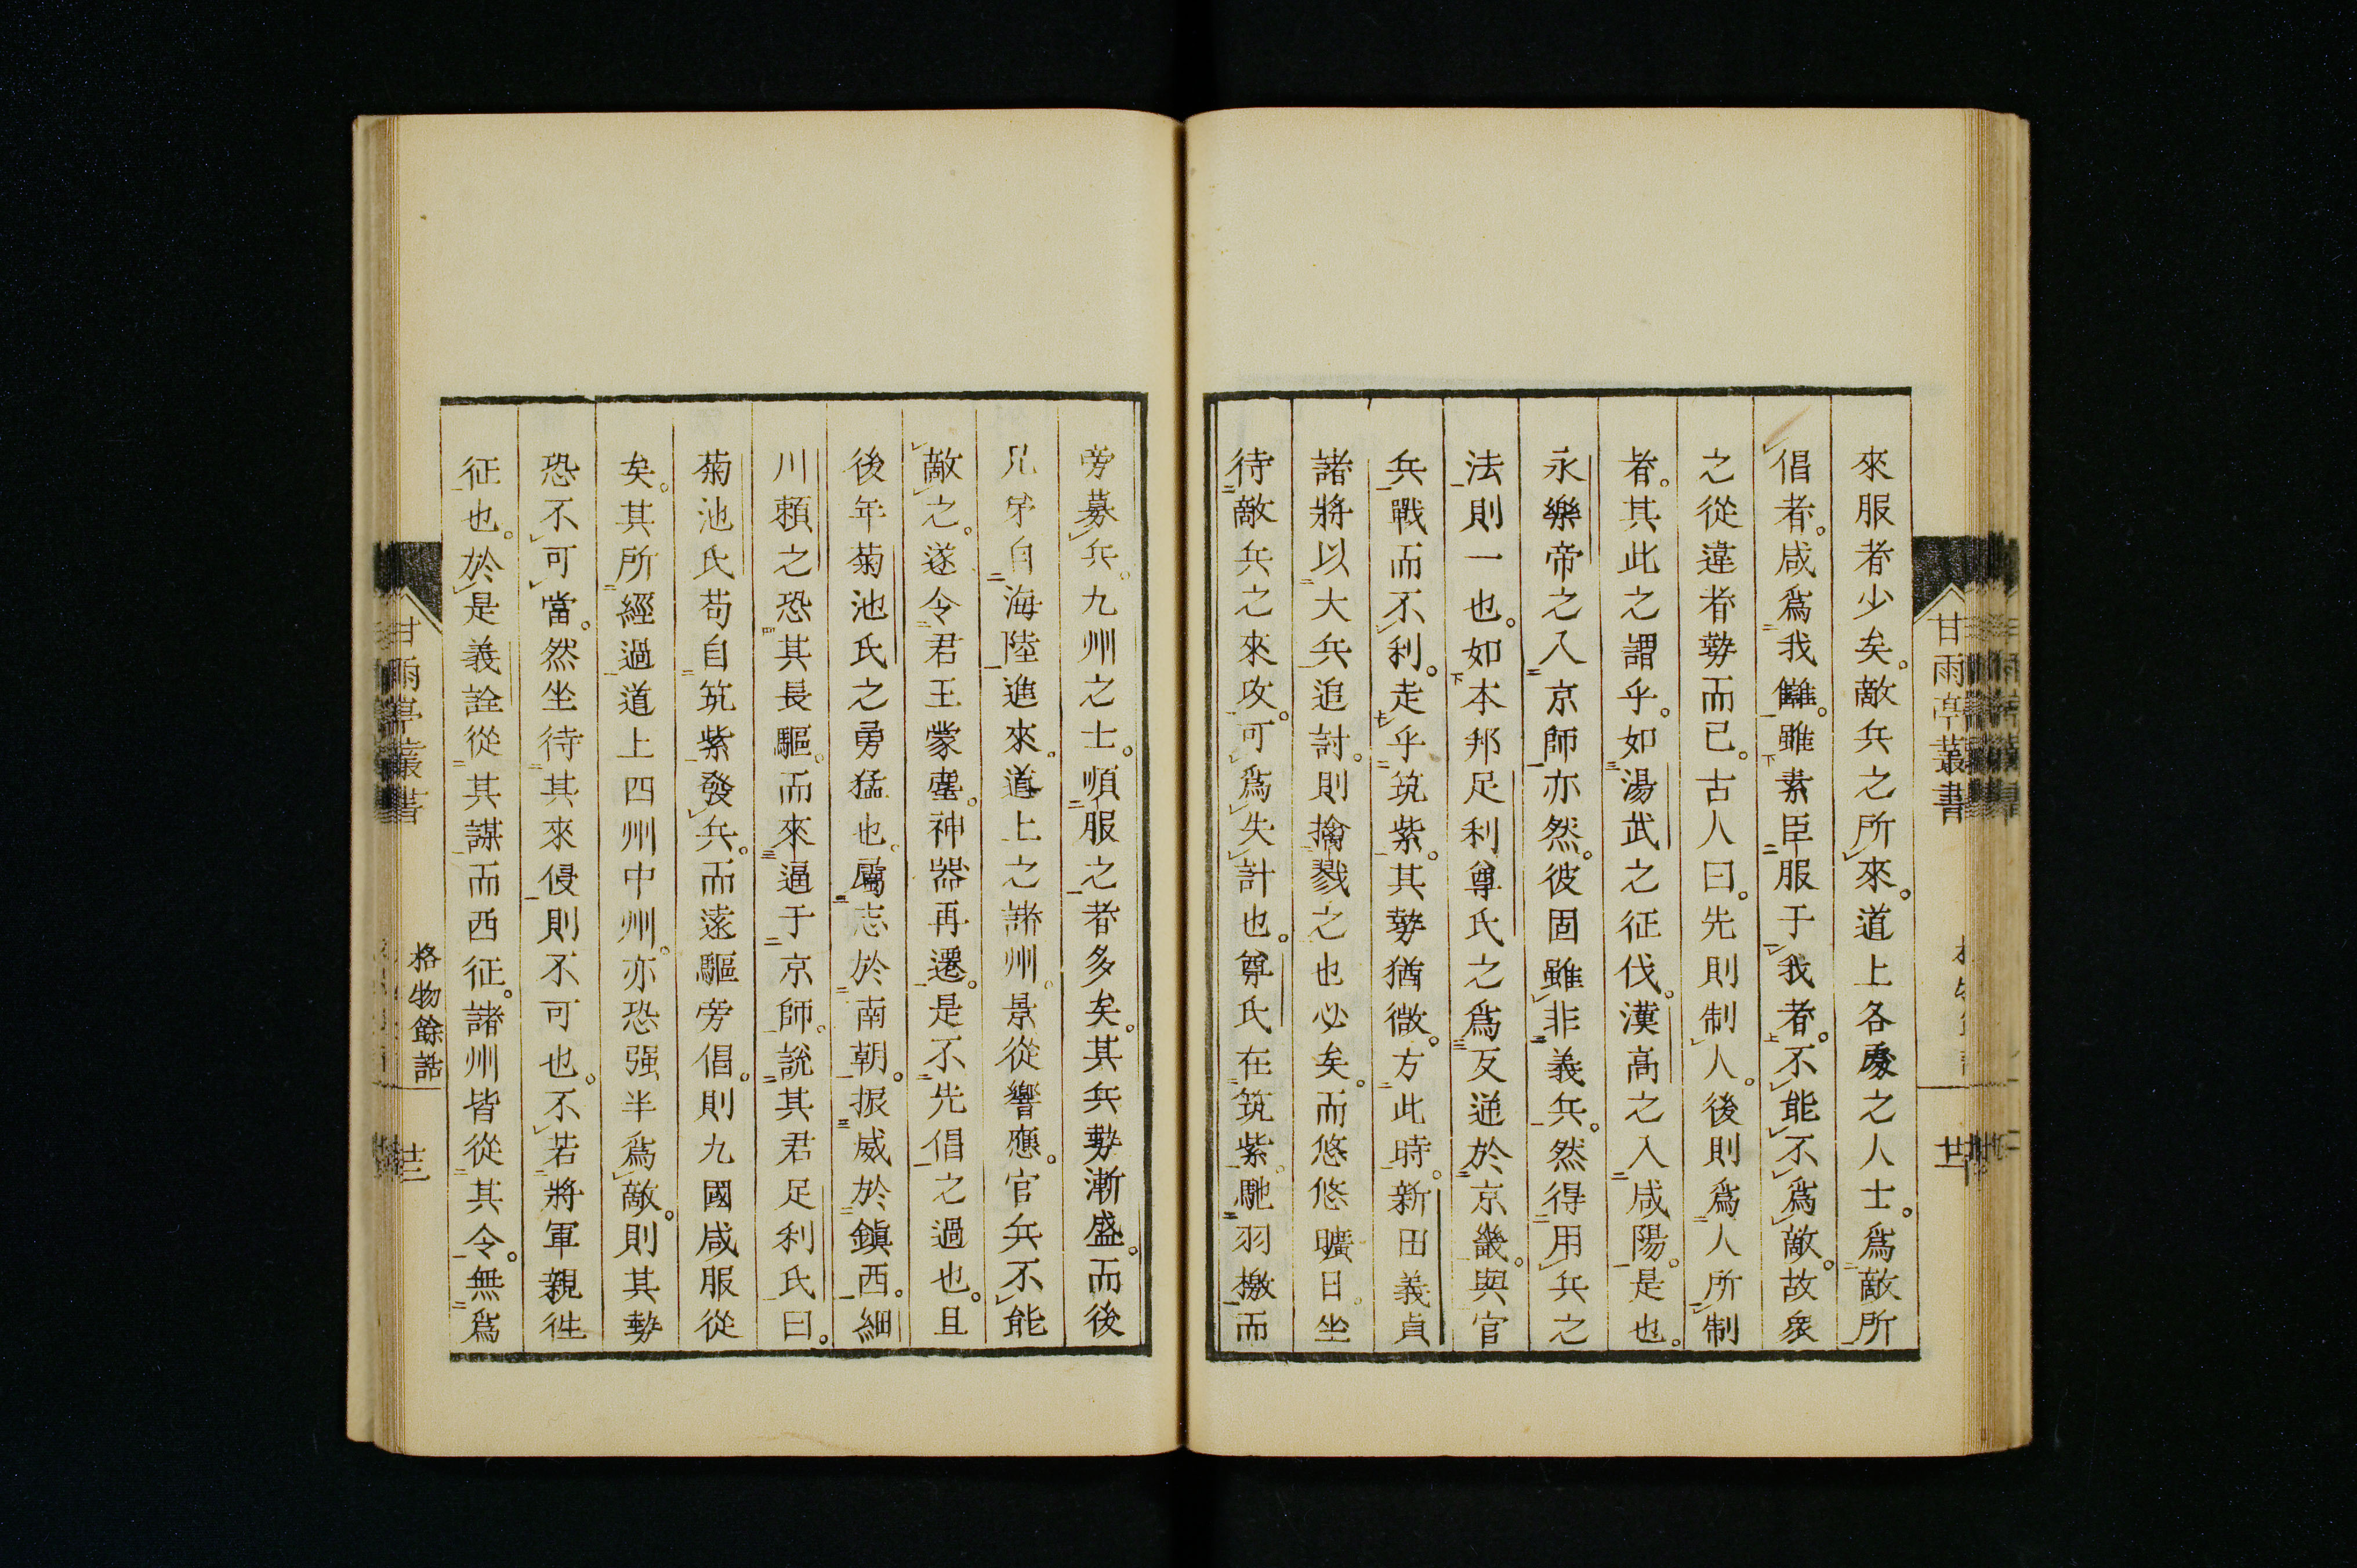 來服者少矣。敵兵之所來。道上各處之人士。爲敵所
倡者。咸爲我讎。雖素臣服于我者。不能不爲敵。故衆
之從違者勢而已。古人曰。先則制人。後則爲人所制
者。其此之謂乎。如湯武之征伐。漢高之入咸陽。是也。
永樂帝之入京師亦然。彼固雖非義兵。然得用兵之
法則一也。如本邦足利尊氏之爲反逆於京畿。與官
兵戰而不利。走乎筑紫。其勢猶微。方此時。新田義貞
諸將以大兵追討。則擒戮之也必矣。而悠悠曠日。坐
待敵兵之來攻。可爲失計也。尊氏在筑紫。馳羽檄而
甘雨亭叢書
廿二
旁募兵。九州之士。順服之者多矣。其兵勢漸盛。而後
兄弟自海陸進來。道上之諸州。景從響應。官兵不能
敵之。遂令君王蒙塵。神器再遷。是不先倡之過也。且
後年菊池氏之勇猛也。屬志於南朝。振威於鎭西。細
川賴之恐其長驅。而來逼于京師。説其君足利氏曰。
菊池氏苟自筑紫發兵。而遠驅旁倡。則九國咸服從
矣。其所經過道上四州中州。亦恐强半爲敵。則其勢
恐不可當。然坐待其來侵則不可也。不若將軍親往
征也。於是義詮從其謀而西征。諸州皆從其令。無爲
甘雨亭叢書
格物餘話
廿三